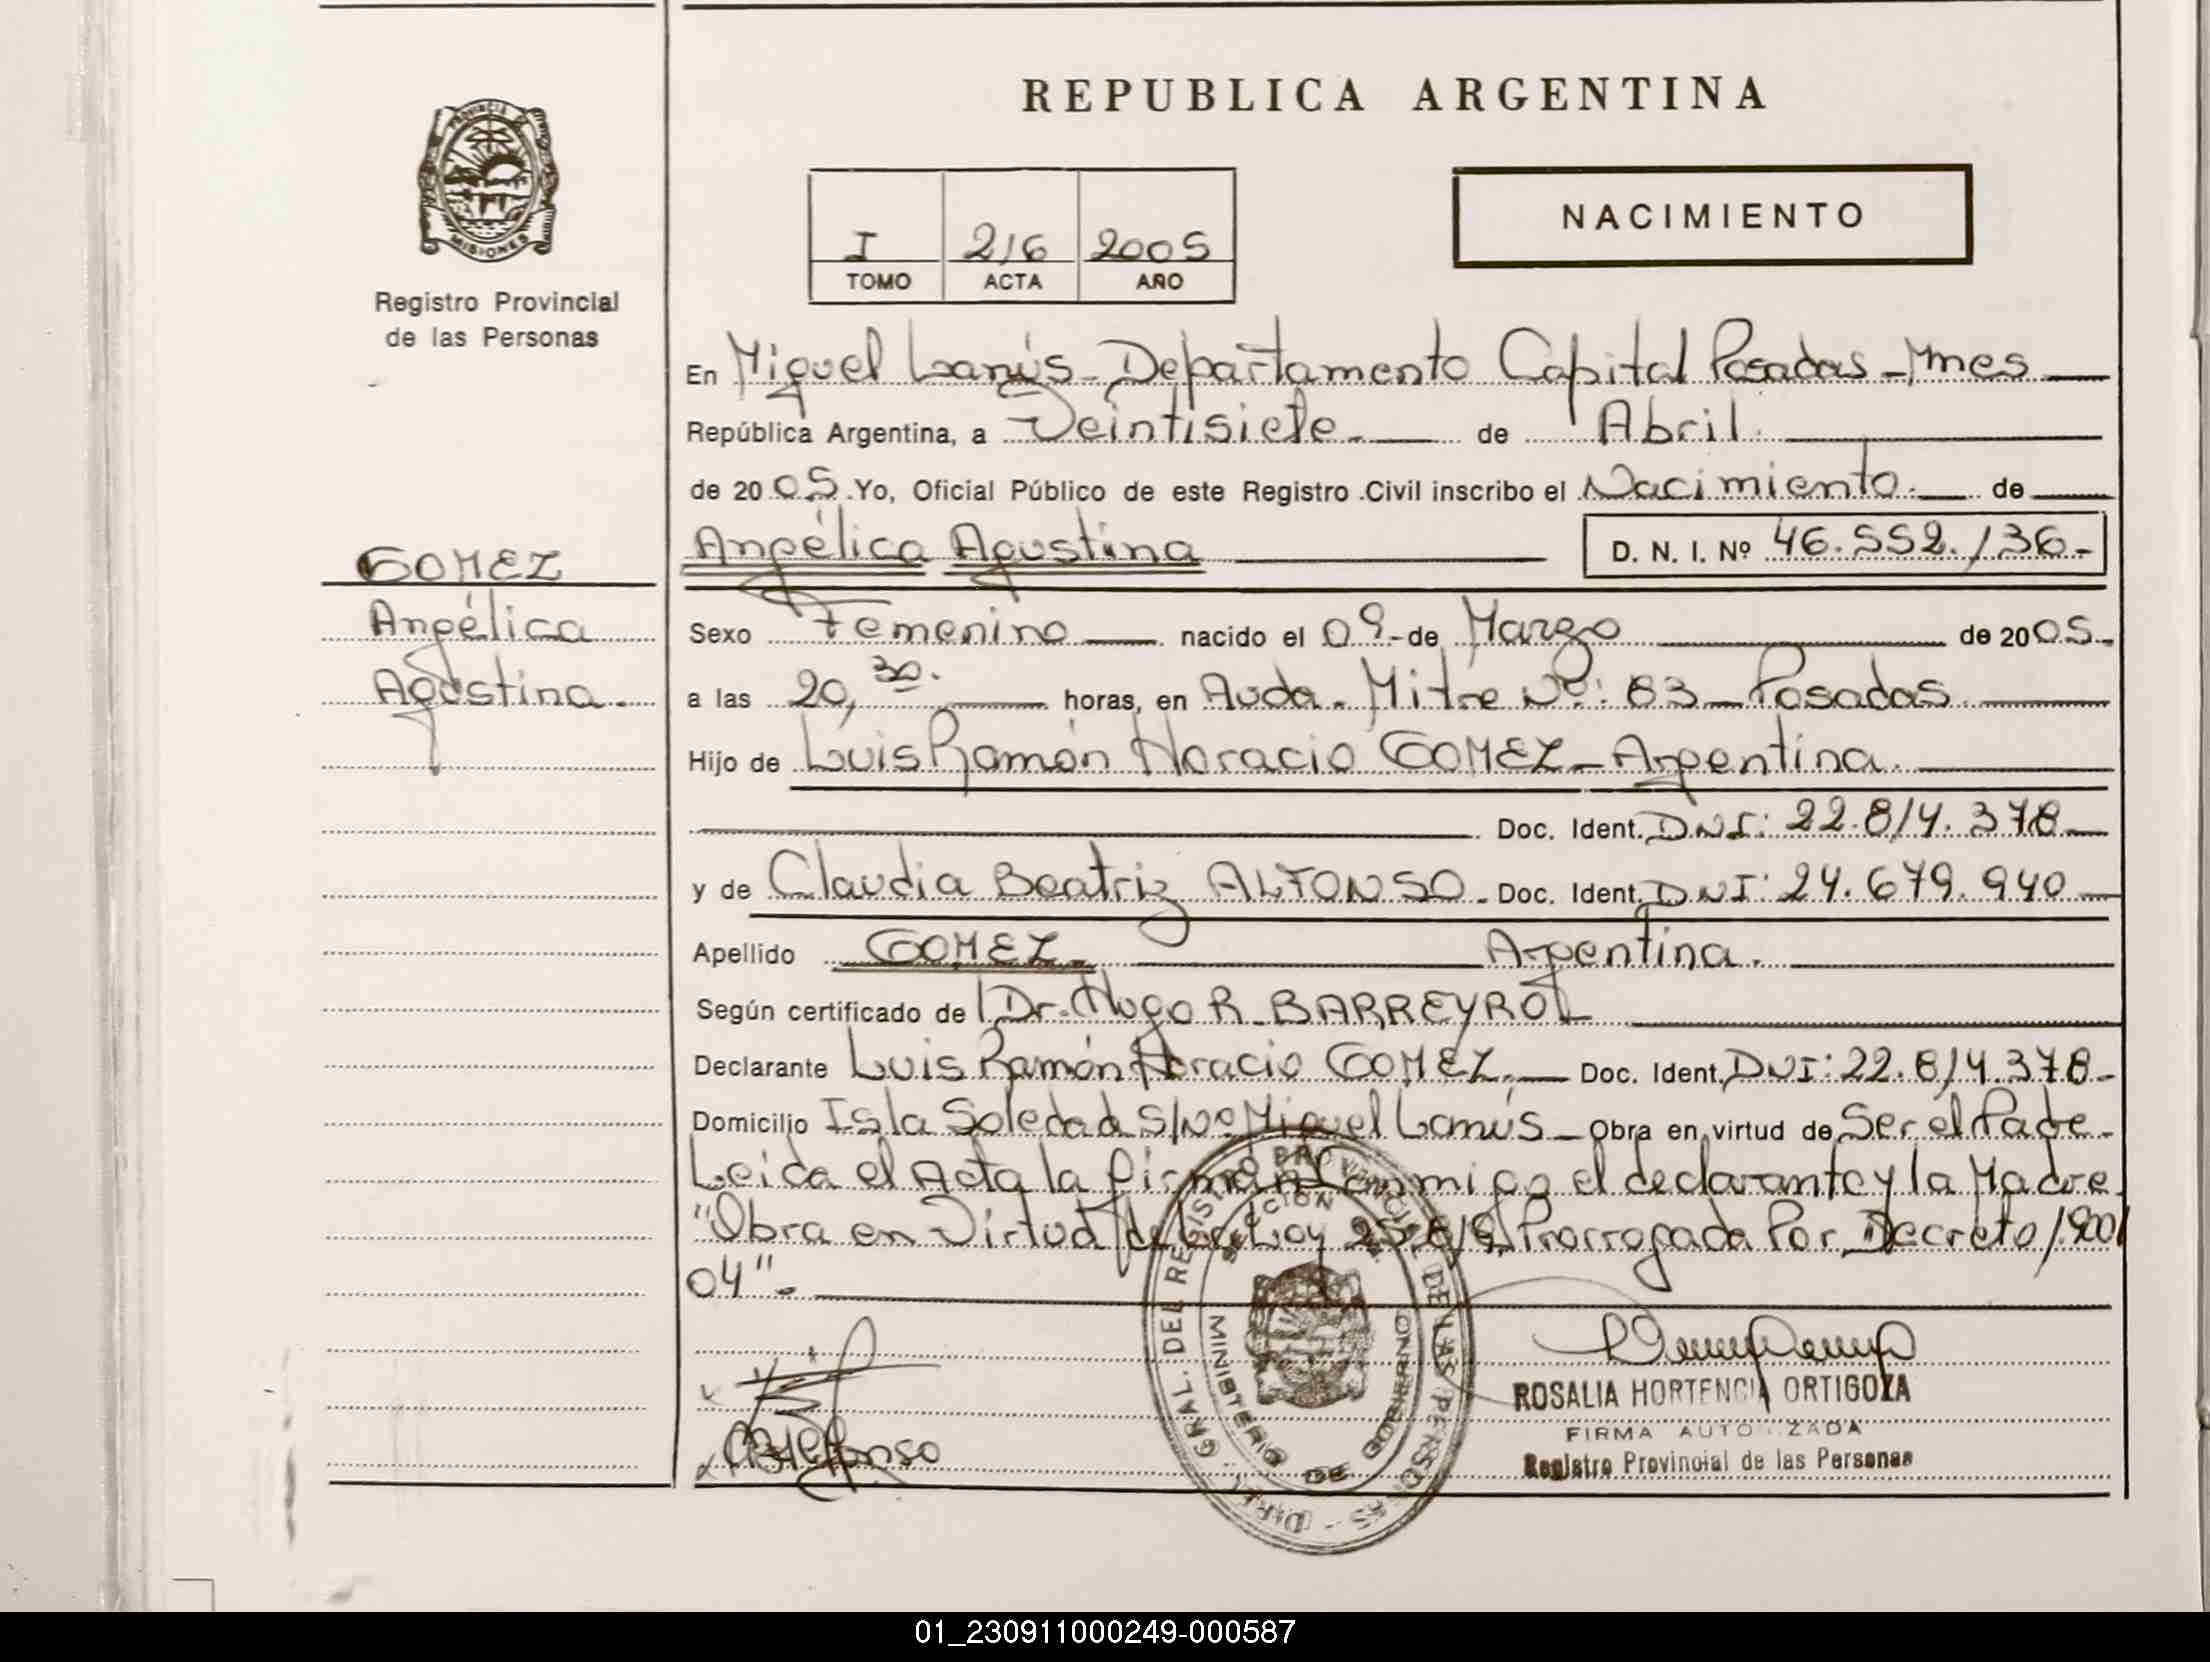 REPUBLICA ARGENTINA
PROVINCIA DE
MISIONES
Registro Provincial
de las Personas
I 216 2005
TOMO ACTA AÑO
NACIMIENTO
En Miguel Lanús - Departamento Capital Posadas - Mnes
República Argentina, a Veintisiete. de Abril.
de 2005. Yo, Oficial Público de este Registro Civil inscribo el Nacimiento. de
Angélica Agustina D. N. I. Nº 46.552.136.-
GOMEZ
Angélica
Agustina.
Sexo Femenino nacido el 09.- de Marzo de 2005.
a las 20,30. horas, en Avda. Mitre Nº: 83 - Posadas.
Hijo de Luis Ramón Horacio GOMEZ - Argentina.
Doc. Ident. DNI: 22.814.378
y de Claudia Beatriz ALFONSO. Doc. Ident. DNI: 24.679.940
Apellido GOMEZ. Argentina.
Según certificado de Dr. Hugo R. BARREYRO
Declarante Luis Ramón Horacio GOMEZ. Doc. Ident. DNI: 22.814.378-
Domicilio Isla Soledad S/Nº Miguel Lanús - Obra en virtud de Ser el Padre.
Leida el Acta la firman Conmigo el declarante y la Madre.
"Obra en Virtud de la Ley 25.819, Prorrogada Por Decreto 1.900/
04".-
CBAlfonso
DIREC. GRAL. DEL REGISTRO PROVINCIAL DE LAS PERSONAS
MINISTERIO DE GOBIERNO
ROSALIA HORTENCIA ORTIGOZA
FIRMA AUTORIZADA
Registro Provincial de las Personas
01_230911000249-000587